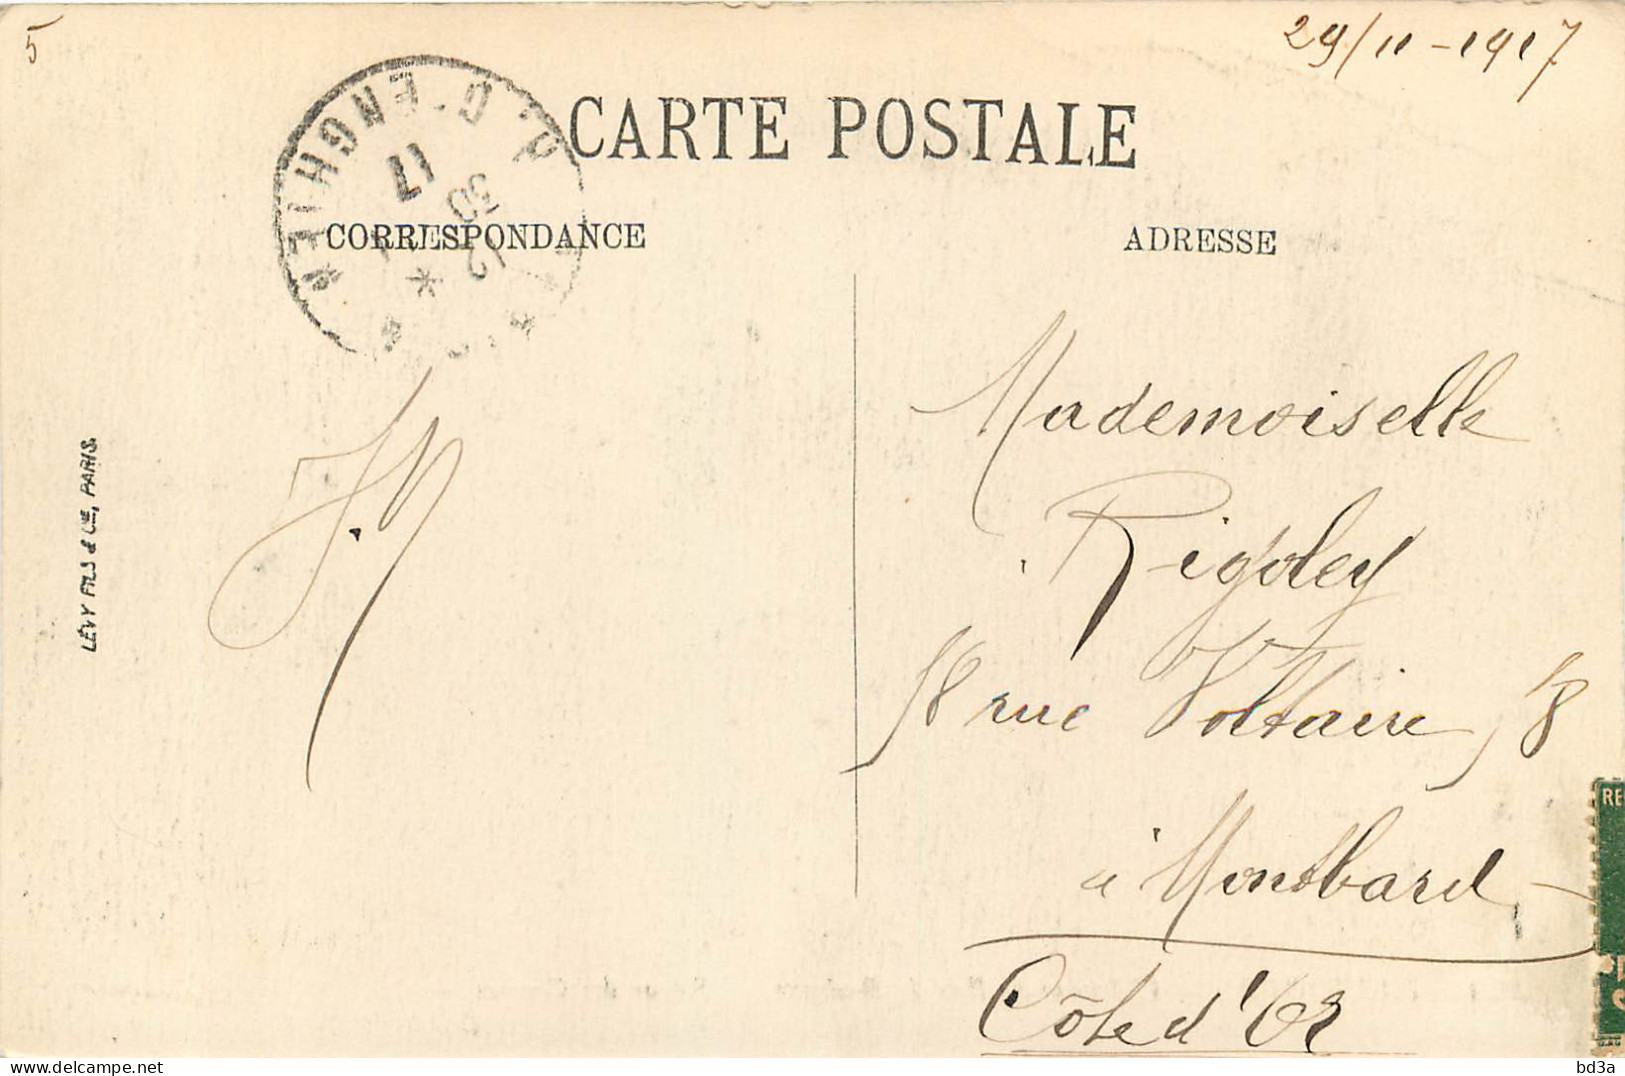 5
29/11-1917
CARTE POSTALE
R. D'ENGHIEN
17
30
12
CORRESPONDANCE
ADRESSE
LÉVY FILS & CIE, PARIS.
Mademoiselle
Rigoley
18 rue Voltaire, 18
à Montbard
Côte d'Or
delcampe.net
bd3a